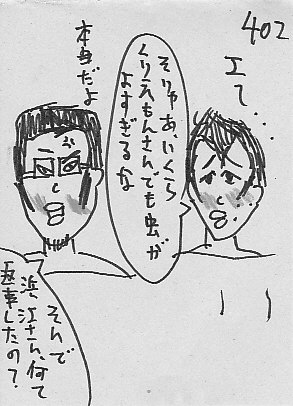 402
エ〜…
そりゃあ、いくら
くりえもんさんでも虫が
よすぎるな
本当だよ
そんで
浜江さん、何て
返事したの？